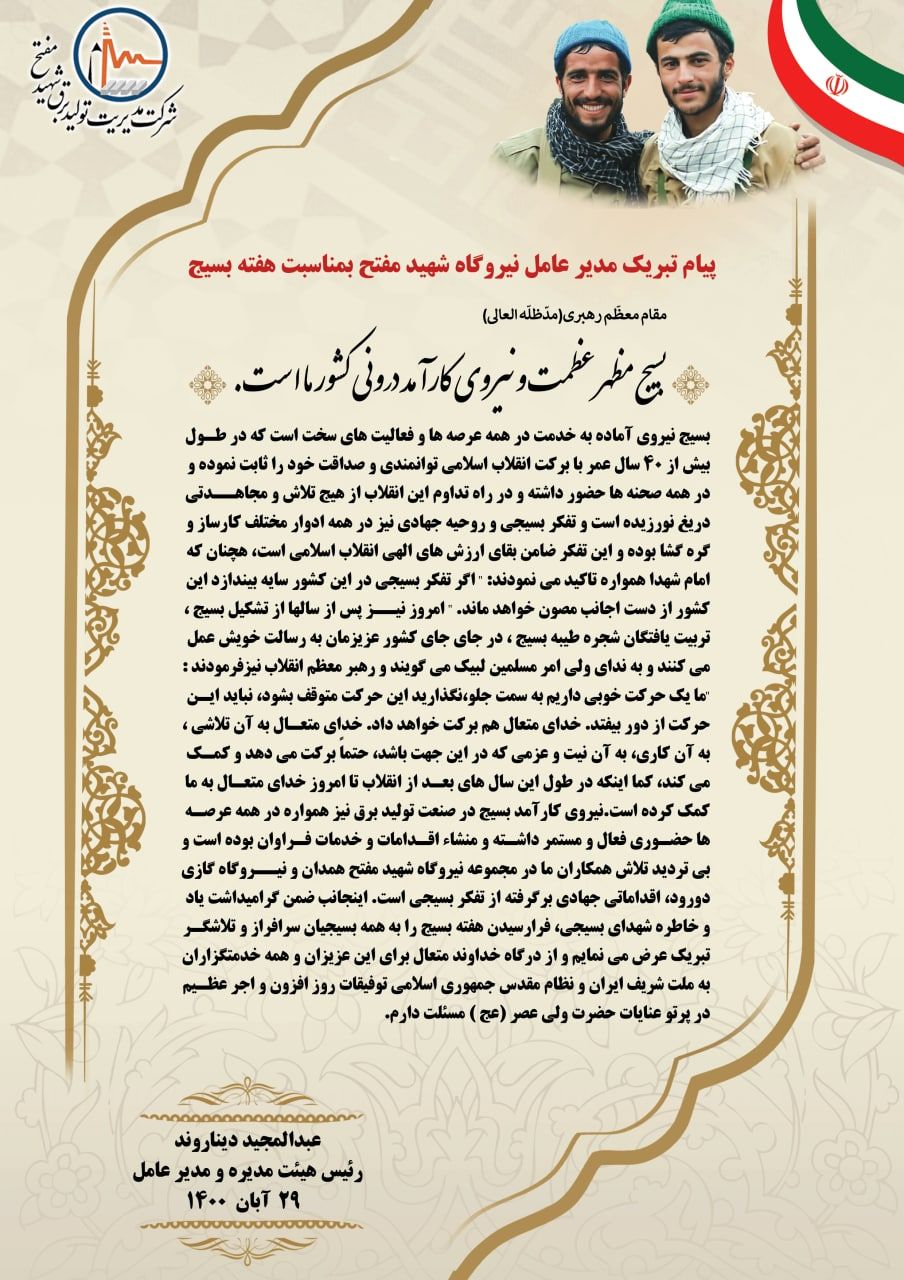 شرکت مدیریت تولید برق شهید مفتح
پیام تبریک مدیر عامل نیروگاه شهید مفتح بمناسبت هفته بسیج
مقام معظّم رهبری(مدّظلّه العالی)
بسیج مظهر عظمت و نیروی کارآمد درونی کشور ما است.
بسیج نیروی آماده به خدمت در همه عرصه ها و فعالیت های سخت است که در طـول
بیش از ۴۰ سال عمر با برکت انقلاب اسلامی توانمندی و صداقت خود را ثابت نموده و
در همه صحنه ها حضور داشته و در راه تداوم این انقلاب از هیچ تلاش و مجاهـدتی
دریغ نورزیده است و تفکر بسیجی و روحیه جهادی نیز در همه ادوار مختلف کارساز و
گره گشا بوده و این تفکر ضامن بقای ارزش های الهی انقلاب اسلامی است، هچنان که
امام شهدا همواره تاکید می نمودند: " اگر تفکر بسیجی در این کشور سایه بیندازد این
کشور از دست اجانب مصون خواهد ماند. " امروز نیـــز پس از سالها از تشکیل بسیج ،
تربیت یافتگان شجره طیبه بسیج ، در جای جای کشور عزیزمان به رسالت خویش عمل
می کنند و به ندای ولی امر مسلمین لبیک می گویند و رهبر معظم انقلاب نیزفرمودند :
"ما یک حرکت خوبی داریم به سمت جلو،نگذارید این حرکت متوقف بشود، نباید ایـن
حرکت از دور بیفتد. خدای متعال هم برکت خواهد داد. خدای متعـال به آن تلاشی ،
به آن کاری، به آن نیت و عزمی که در این جهت باشد، حتماً برکت می دهد و کمـک
می کند، کما اینکه در طول این سال های بعـد از انقلاب تا امروز خدای متعـال به ما
کمک کرده است.نیروی کارآمد بسیج در صنعت تولید برق نیز همواره در همه عرصـه
ها حضـوری فعال و مستمر داشتـه و منشاء اقـدامات و خدمات فـراوان بوده است و
بی تردید تلاش همکاران ما در مجموعه نیروگاه شهید مفتح همدان و نیـــروگاه گازی
دورود، اقداماتی جهادی برگرفته از تفکر بسیجی است. اینجانب ضمن گرامیداشت یاد
و خاطره شهدای بسیجی، فرارسیدن هفته بسیج را به همه بسیجیان سرافراز و تلاشگـر
تبریک عرض می نمایم و از درگاه خداوند متعال برای این عزیزان و همه خدمتگزاران
به ملت شریف ایران و نظام مقدس جمهوری اسلامی توفیقات روز افزون و اجر عظـیم
در پرتو عنایات حضرت ولی عصر (عج ) مسئلت دارم.
عبدالمجید دیناروند
رئیس هیئت مدیره و مدیر عامل
۲۹ آبان ۱۴۰۰